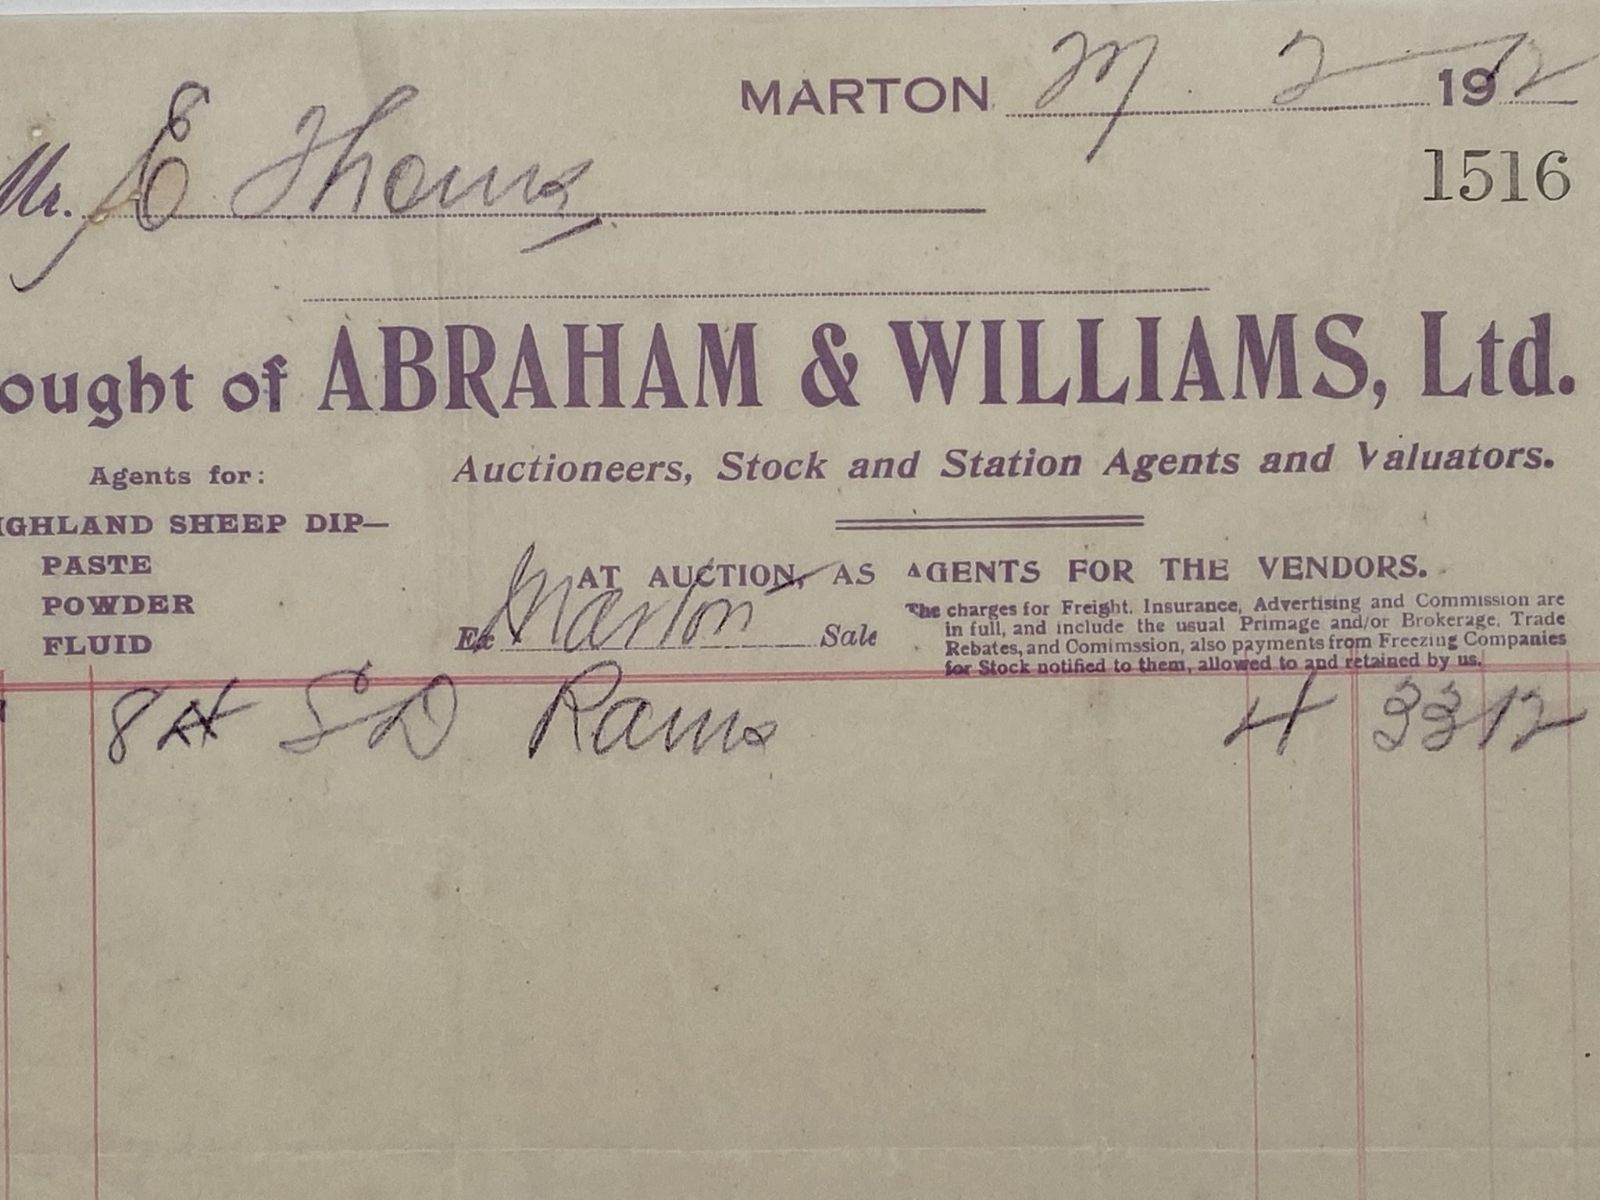 MARTON 2 1912
Mr. E Thoms
1516
ought of ABRAHAM & WILLIAMS, Ltd.
Agents for:
Auctioneers, Stock and Station Agents and Valuators.
IGHLAND SHEEP DIP—
PASTE
POWDER
FLUID
AT AUCTION, AS AGENTS FOR THE VENDORS.
Ex Marton Sale
The charges for Freight, Insurance, Advertising and Commission are
in full, and include the usual Primage and/or Brokerage, Trade
Rebates, and Comimssion, also payments from Freezing Companies
for Stock notified to them, allowed to and retained by us.
8 SD Rams 4 33 12